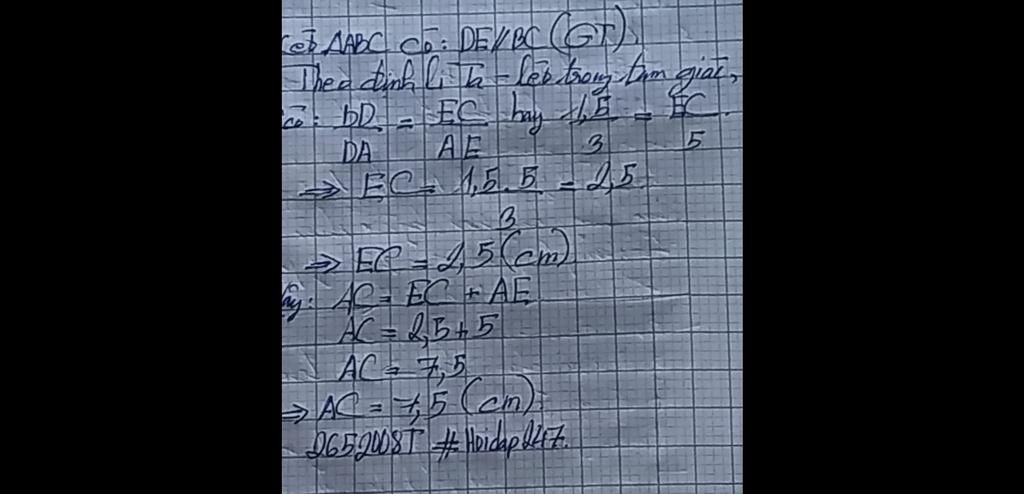 Xét ΔABC có: DE//BC (GT).
Theo định lí Ta-lét trong tam giác,
có: BD/DA = EC/AE hay 1,5/3 = EC/5.
⇒ EC = 1,5.5/3 = 2,5.
⇒ EC = 2,5 (cm)
AC = EC + AE
AC = 2,5 + 5
AC = 7,5
⇒ AC = 7,5 (cm)
2652008T #Hoidap247.